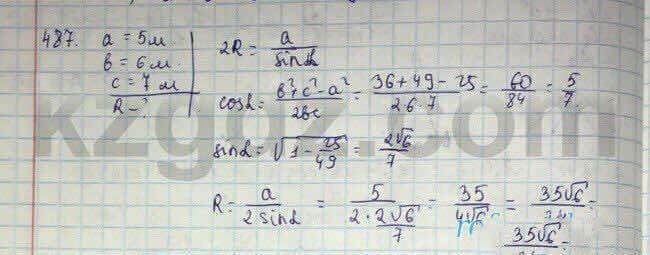 487. a = 5м
b = 6м
c = 7м
R - ?
2R = a / sinα
cosα = (b² + c² - a²) / 2bc = (36 + 49 - 25) / (2·6·7) = 60/84 = 5/7.
sinα = √(1 - 25/49) = 2√6/7
R = a / 2sinα = 5 / (2·2√6/7) = 35 / 4√6 = 35√6
35√6
kzgdz.com